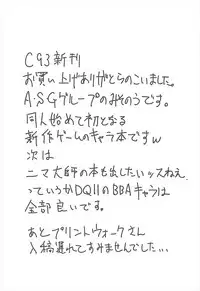 C93新刊
お買い上げありがとうのこいました。
A・SGグループのみそのうです。
同人始めて初となる
新作ゲームのキャラ本ですw
次は
ニマ大師の本も出したいッスねえ
っていうかDQ11のBBAキャラは
全部良いです。
あとプリントウォークさん
入稿遅れてすみませんでした…